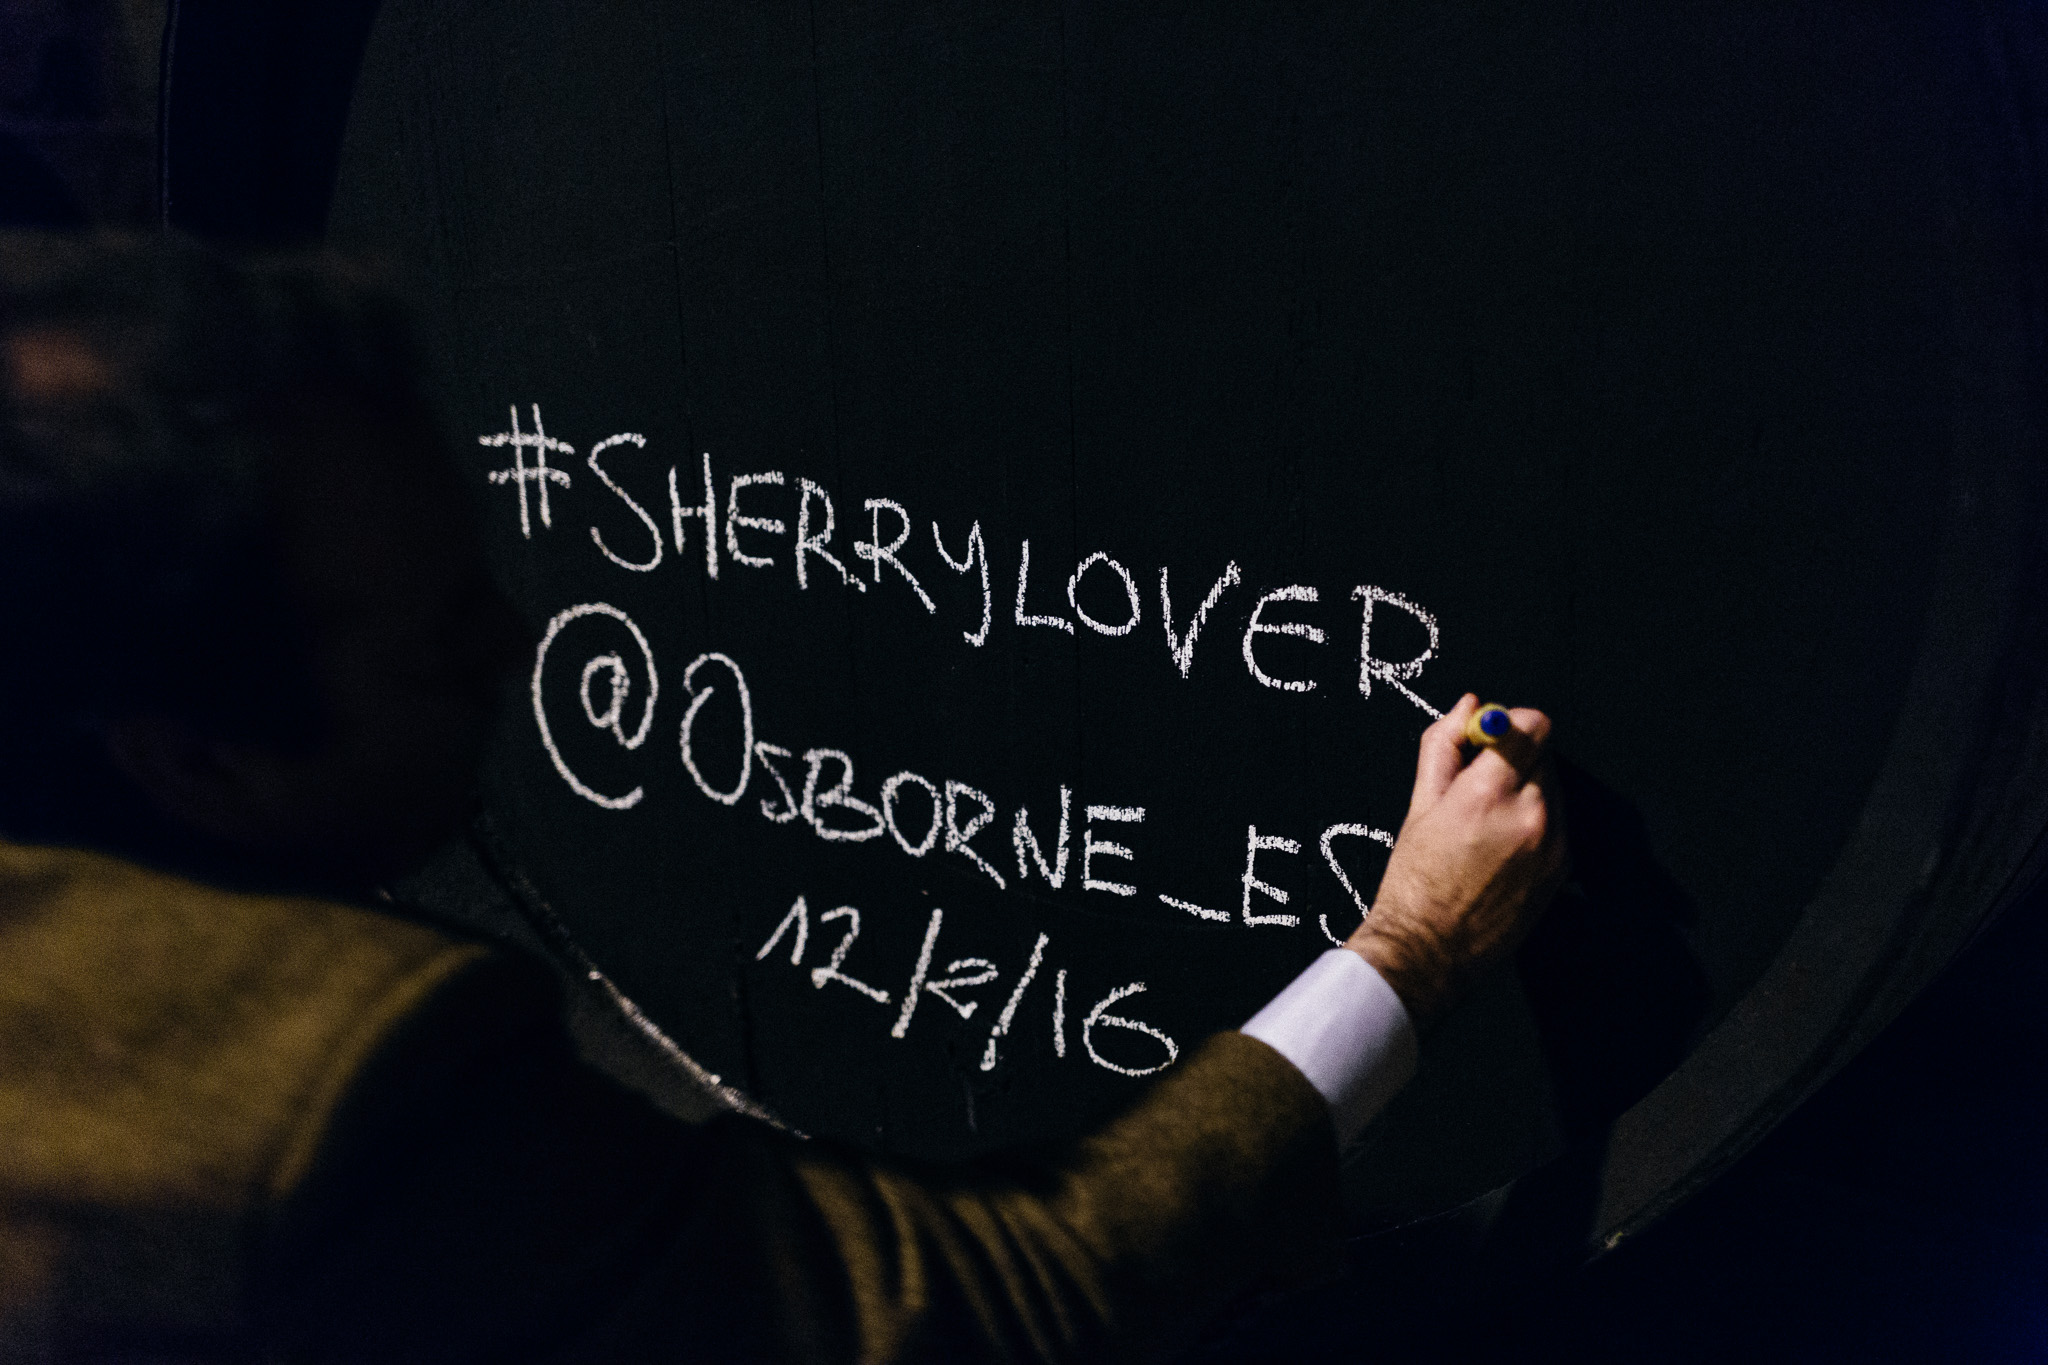 #SHERRYLOVER
@OSBORNE_ES
12/2/16